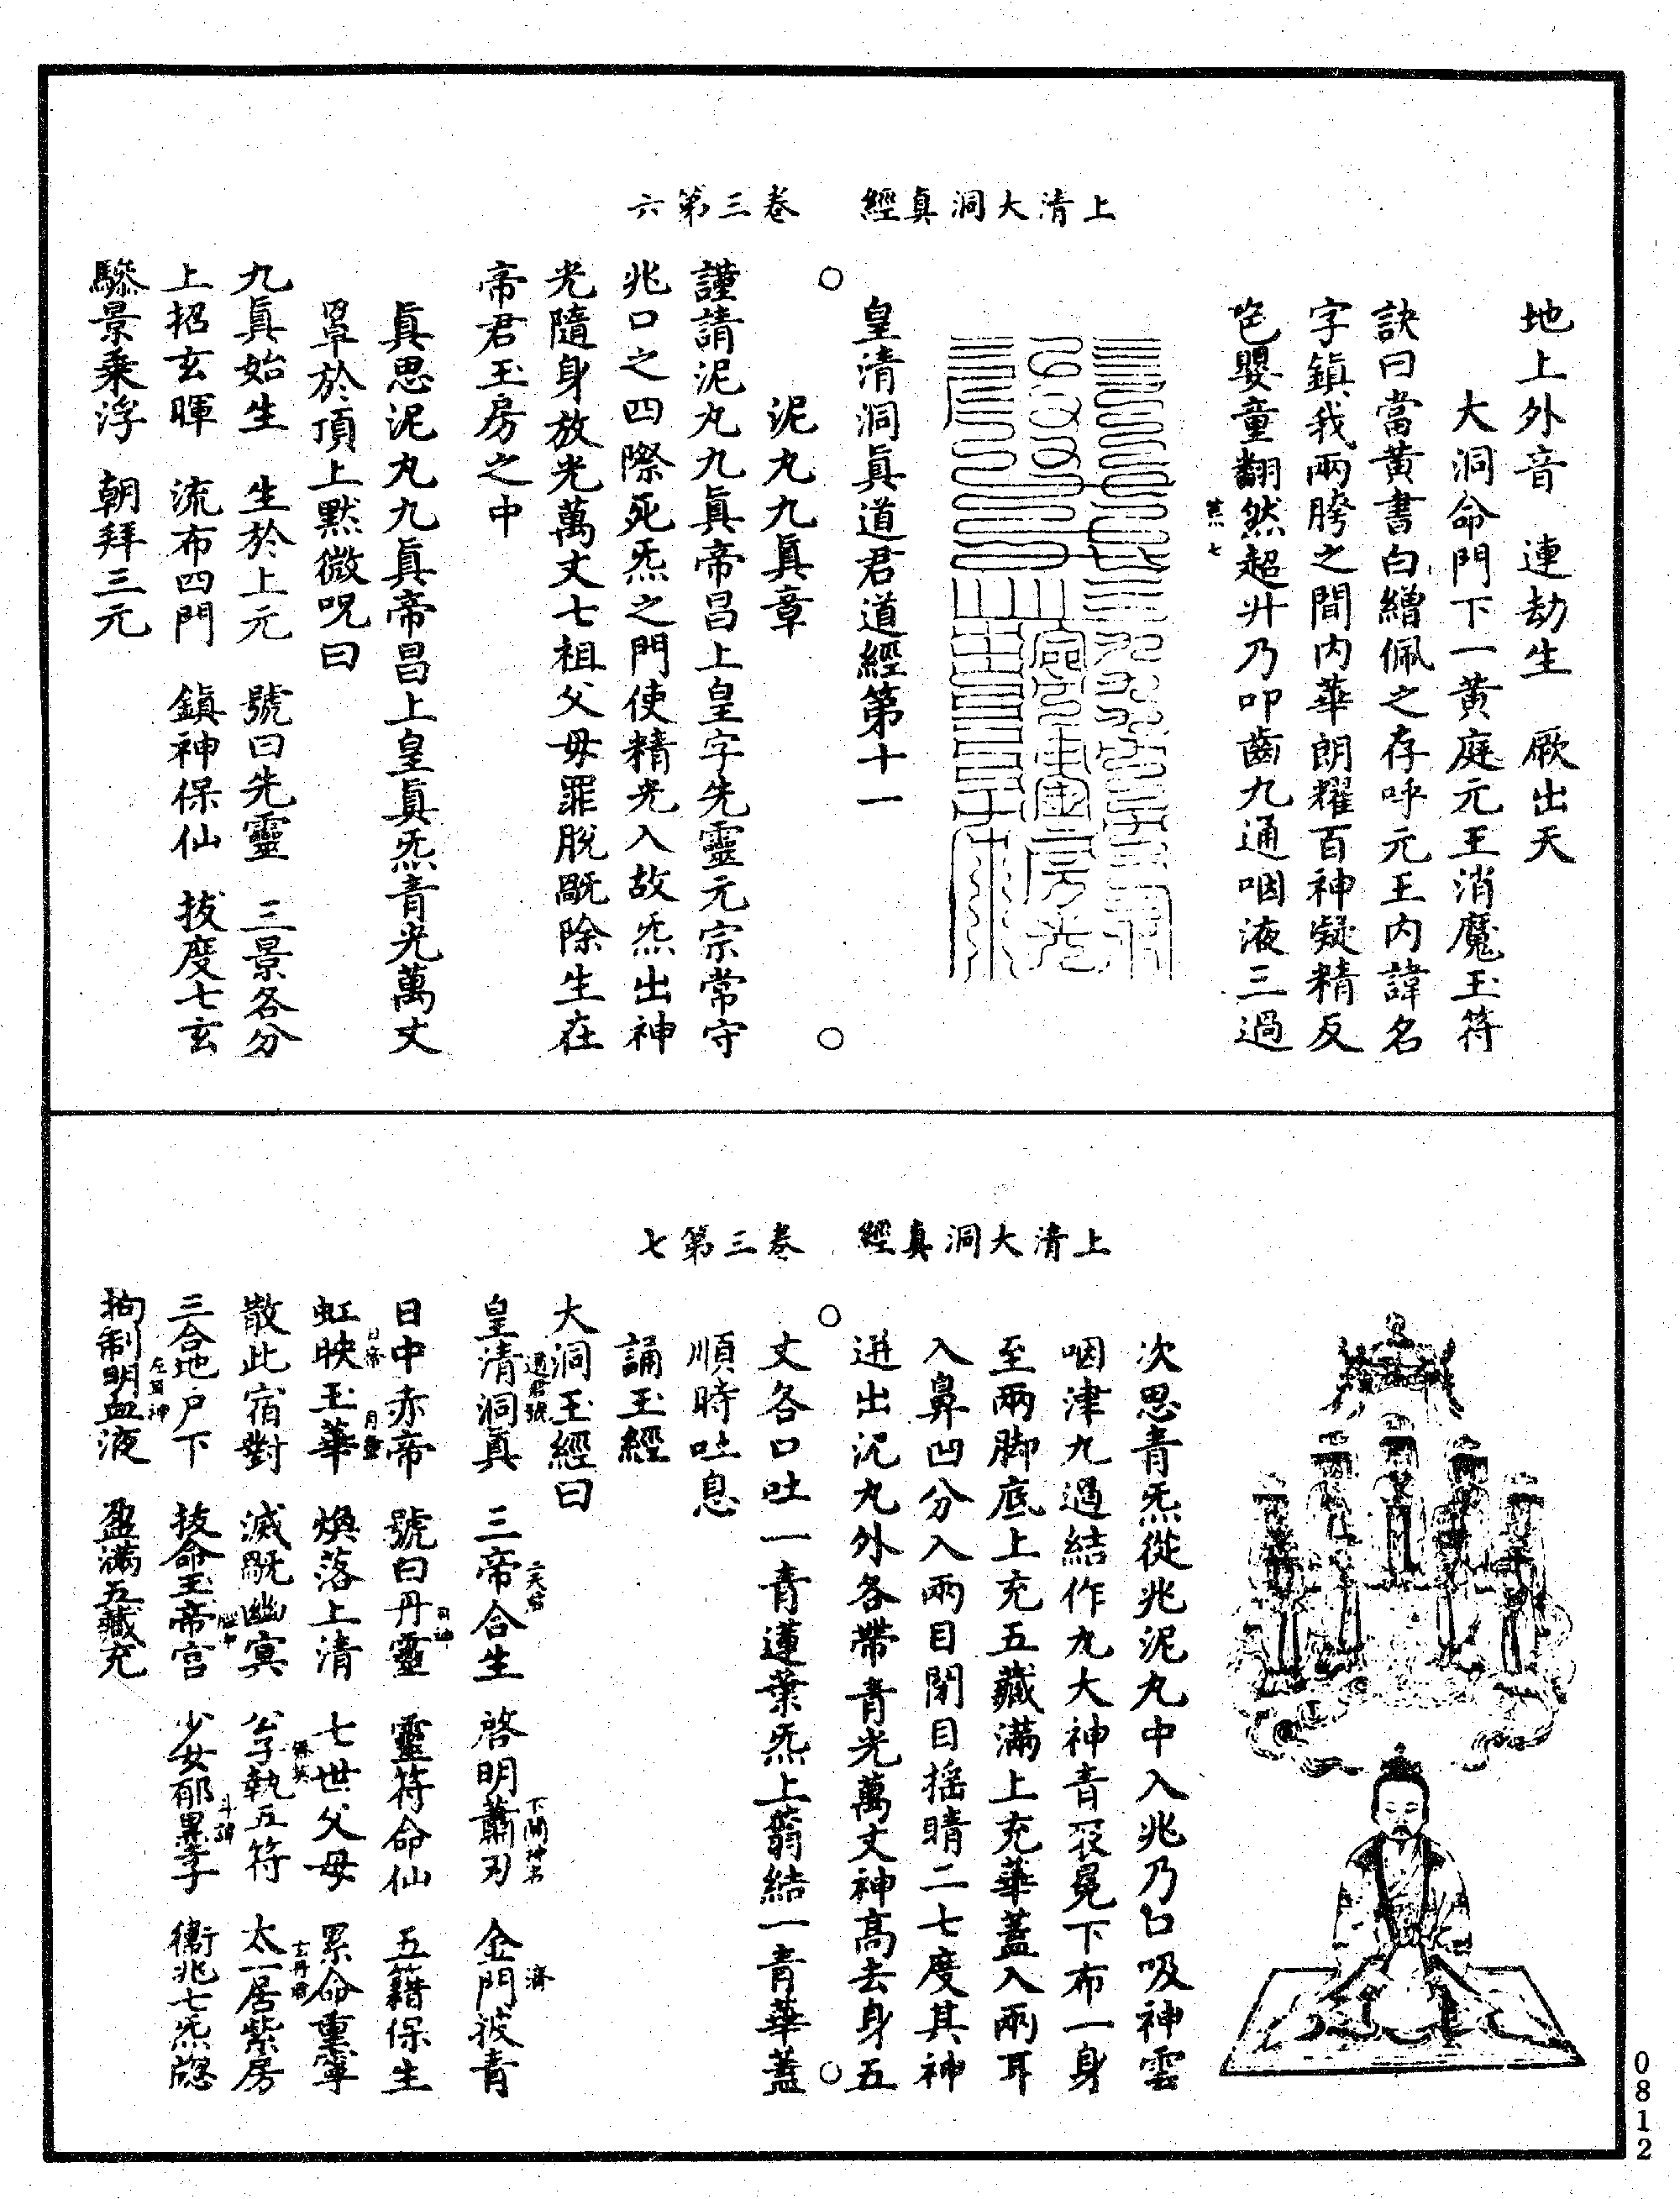 上清大洞真經　卷三第六
地上外音　連劫生　厥出天
大洞命門下一黃庭元王消魔玉符
訣曰當黃書白繒佩之存呼元王內諱名
字鎮我兩胯之間內華朗耀百神凝精反
色嬰童翻然超升乃叩齒九通咽液三過
皇清洞眞道君道經第十一
泥丸九眞章
謹請泥丸九眞帝昌上皇字先靈元宗常守
兆口之四際死炁之門使精光入故炁出神
光隨身放光萬丈七祖父母罪脫翫除生在
帝君玉房之中
眞思泥丸九眞帝昌上皇眞炁青光萬丈
罩於頂上默微呪曰
九眞始生　生於上元　號曰先靈　三景各分
上招玄暉　流布四門　鎮神保仙　拔度七玄
驂景乘浮　朝拜三元
上清大洞真經　卷三第七
次思青炁從兆泥丸中入兆乃口吸神雲
咽津九過結作九大神青衣冕下布一身
至兩脚底上充五藏滿上充華蓋入兩耳
入鼻凹分入兩目閉目搖睛二七度其神
迸出泥丸外各帶青光萬丈神高去身五
丈各口吐一青蓮葉炁上蓊結一青華蓋
順時吐息
誦玉經
大洞玉經曰
皇清洞眞　三帝合生　啓明蕭刃　金門披青
日中赤帝　號曰丹靈　靈符命仙　五籍保生
虹映玉華　煥落上清　七世父母　累命重寧
散此宿對　滅翫幽冥　公子執五符　太一居紫房
三合地戶下　拔命玉帝宮　少女郁黑李　衞兆七炁
拘制明血液　盈滿五藏充
0812